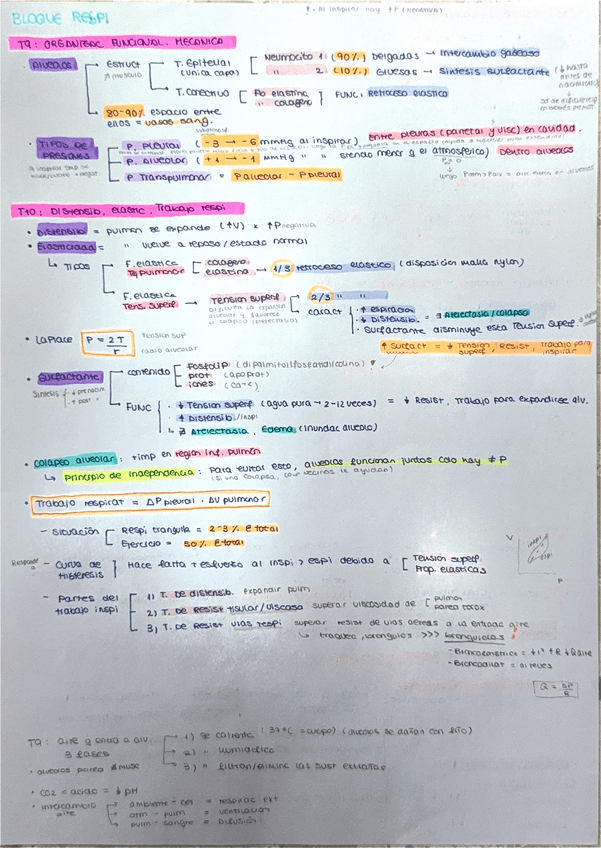 ↑. Al inspirar hay ↑P (negativa)
BLOQUE RESPI
T9: ORGANIZAC FUNCIONAL. MECANICA
ALVEOLOS
ESTRUCT
T. Epitelial (única capa)
Neumocito 1 (90%) Delgadas → Intercambio gaseoso
" 2 (10%) Gruesas → Síntesis surfactante
(↓ hasta antes de nacimiento)
T. Conectivo
Fb elastina
" colágeno
FUNC: Retroceso elástico
80-90% espacio entre ellos = vasos sang.
TIPOS DE PRESIONES
P. Pleural (-3 → -6 mmHg al inspirar) entre pleuras (parietal y visc) en cavidad.
P. Alveolar (+1 → -1 mmHg " " siendo menor q el atmosférico) Dentro alveolos
P. Transpulmonar = P alveolar - P pleural
T10: Distensib, elastic, Trabajo respi
Distensib = pulmón se expande (↑V) x ↑P negativa
Elasticidad = " vuelve a reposo/estado normal
↳ TIPOS
F. elástica Tej pulmonar
colágeno
elastina
→ 1/3 retroceso elástico (disposición malla nylon)
F. elástica Tens. superf
→ Tensión superf
2/3 " "
caract
↑ espiración
↓ Distensib = ∃ Atelectasia/colapso
Surfactante disminuye esta Tensión superf
↑ Surfact = ↓ Tensión superf, Resist, Trabajo para inspirar
Laplace P = 2T/r
Tensión sup
radio alveolar
Surfactante
contenido
Fosfolip (dipalmitoilfosfatidilcolina)
prot (apoprot)
iones (Ca++)
FUNC
↓ Tensión superf (agua pura → 2-12 veces) = ↓ Resist, Trabajo para expandirse alv.
↑ Distensib/inspi
∄ Atelectasia, Edema (inundac alveolo)
Colapso alveolar: +imp en región inf. pulmón
↳ Principio de Independencia: Para evitar esto, alveolos funcionan juntos cdo hay ≠ P
Trabajo respirat = ΔP pleural · ΔV pulmonar
- Situación
Respi tranquila = 2-3% E total
Ejercicio = 50% E total
- Curva de Histéresis } Hace falta + esfuerzo al inspi > espi debido a
Tensión superf.
Prop. elásticas
V
inspi
P
- Partes del trabajo inspi
1) T. de distensib. expandir pulm
2) T. de Resist tisular/viscosa superar viscosidad de
pulmón
pared tórax
3) T. de Resist vías respi superar resist de vías aéreas a la entrada aire
↳ traquea, bronquios >>> bronquiolos
- Broncoconstricc = ↓r⁴ ↑R ↓Q aire
- Broncodilat = al revés
Q = ΔP/R
T9: aire q entra a alv. 3 fases
1) Se calienta (37ºC = cuerpo) (alveolos se dañan con frío)
2) " humidifica
3) " filtran/elimina las sust extrañas
• alveolos pared ∄ musc
• CO2 = ácido = ↓ pH
• Intercambio aire
ambiente - cel = respirac ext
atm - pulm = ventilación
pulm - sangre = difusión